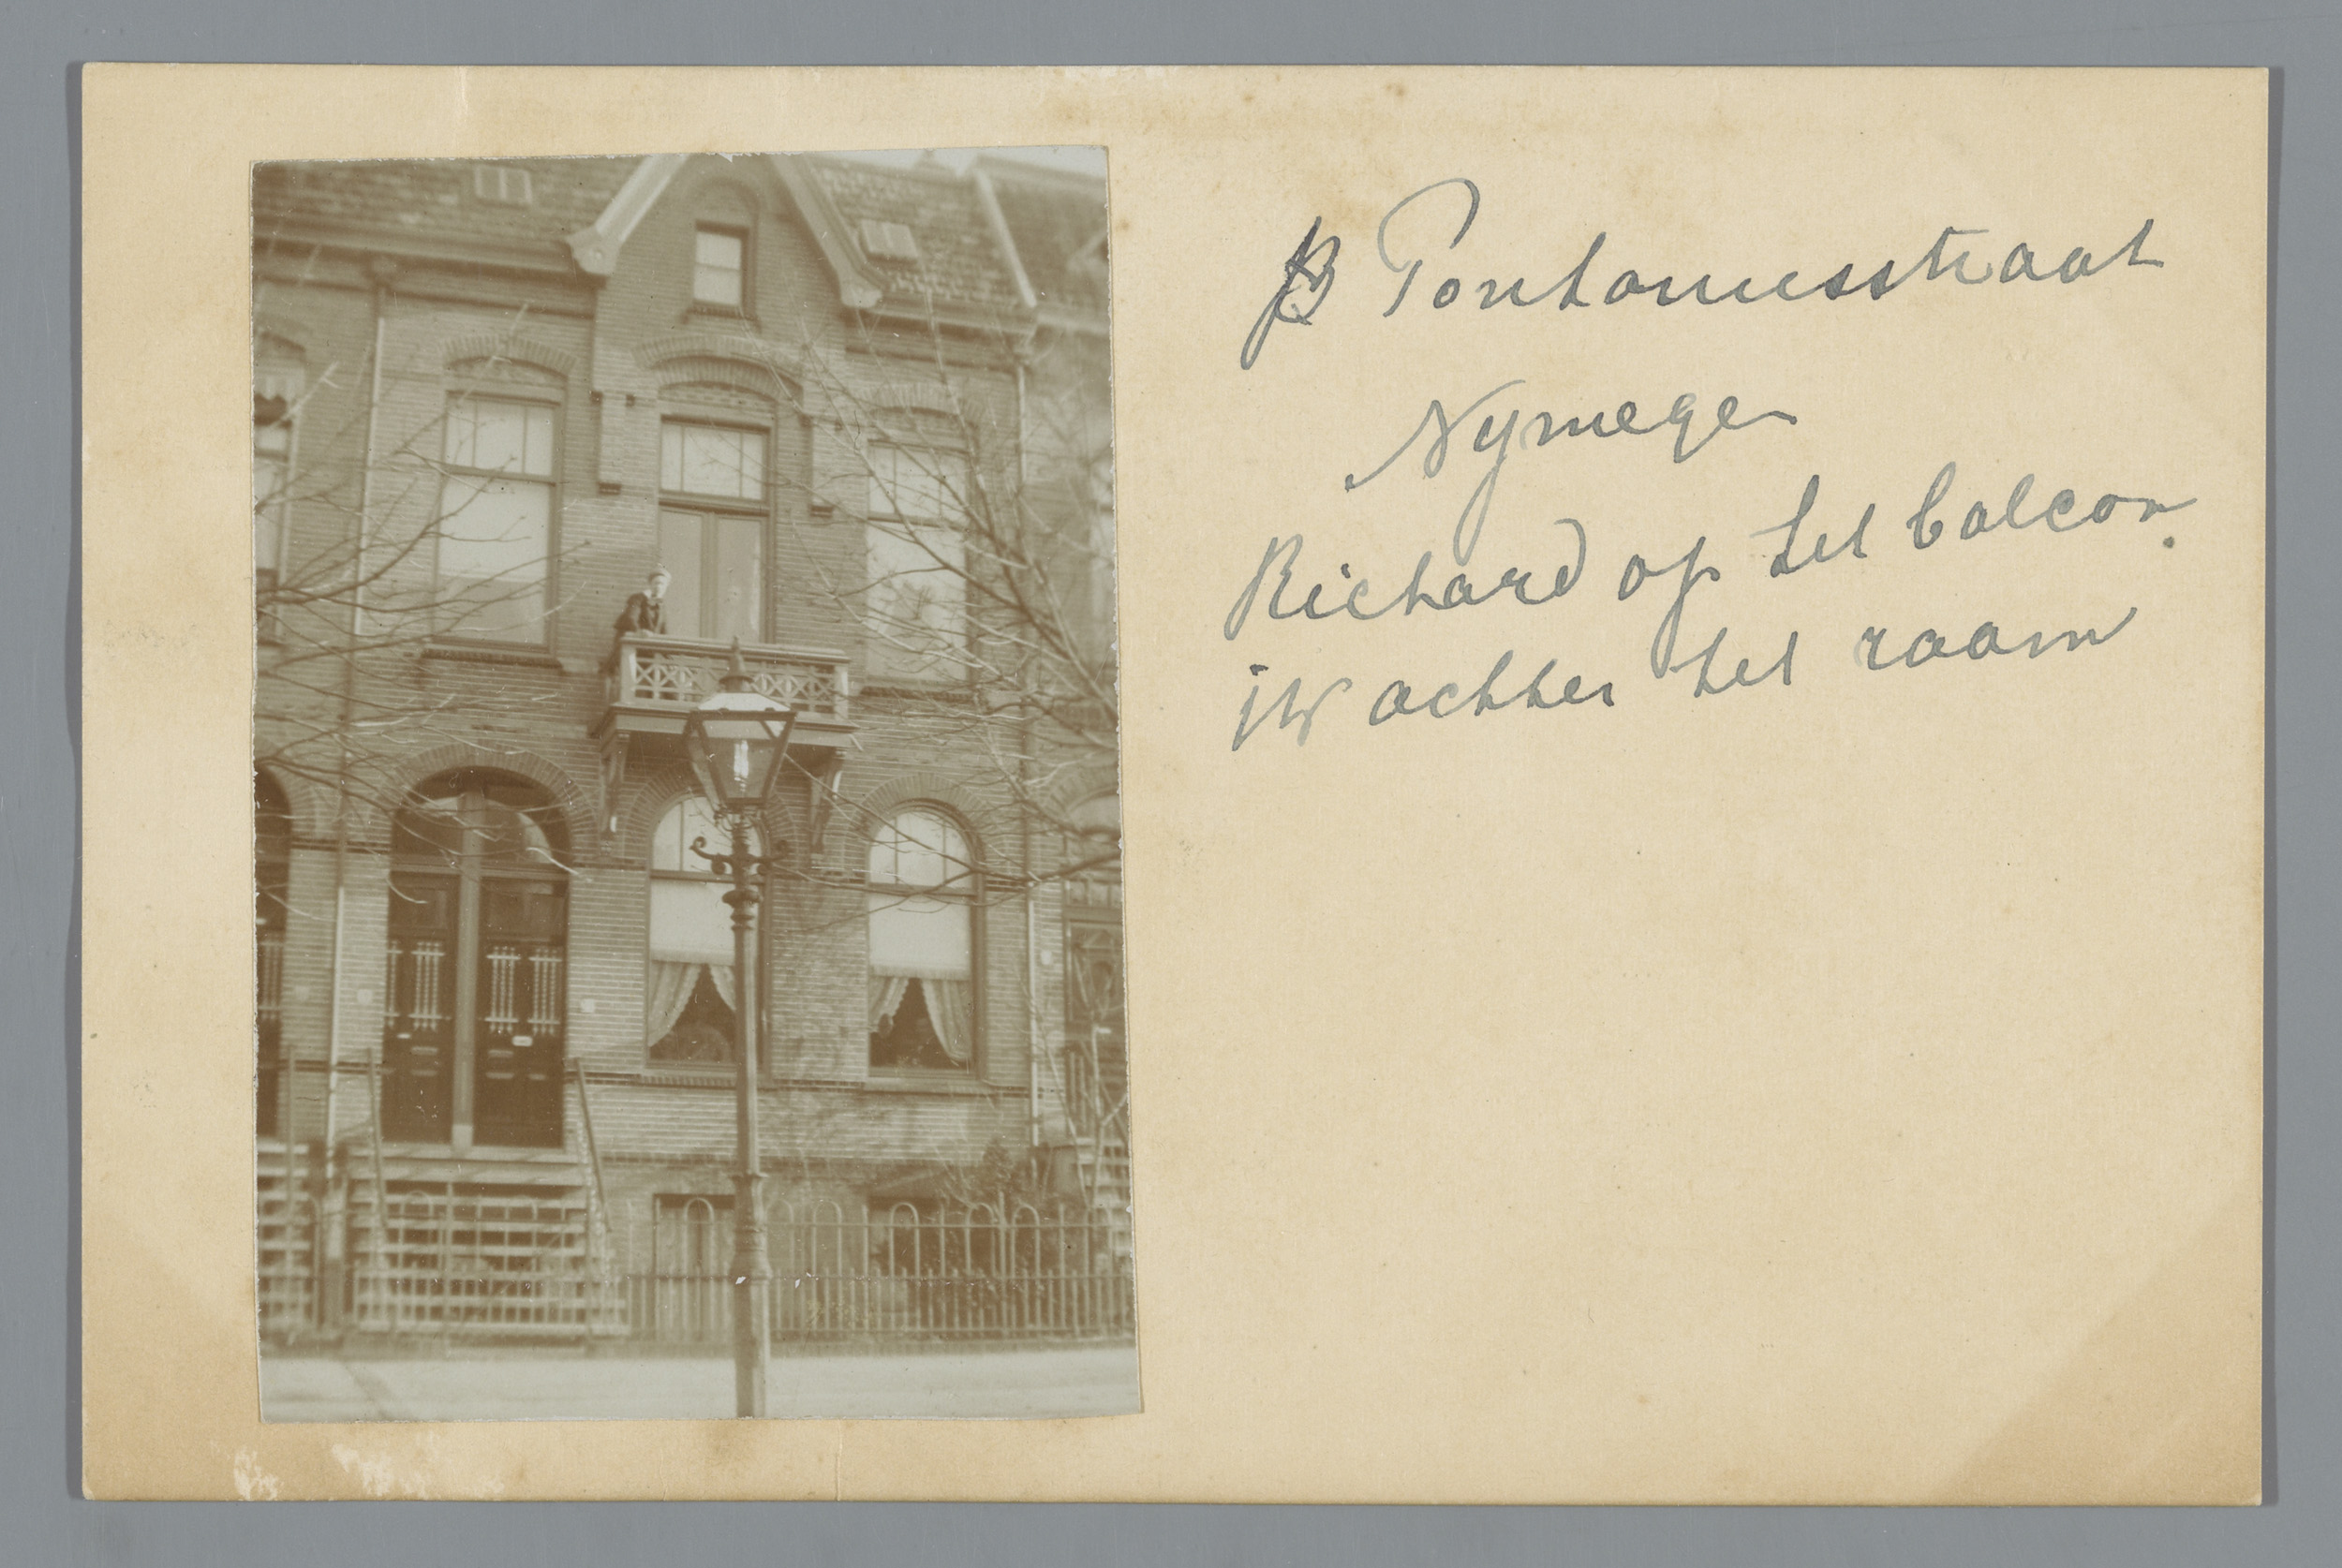 Pontanusstraat
Nymege
Richard op het balcon.
JW achter het raam